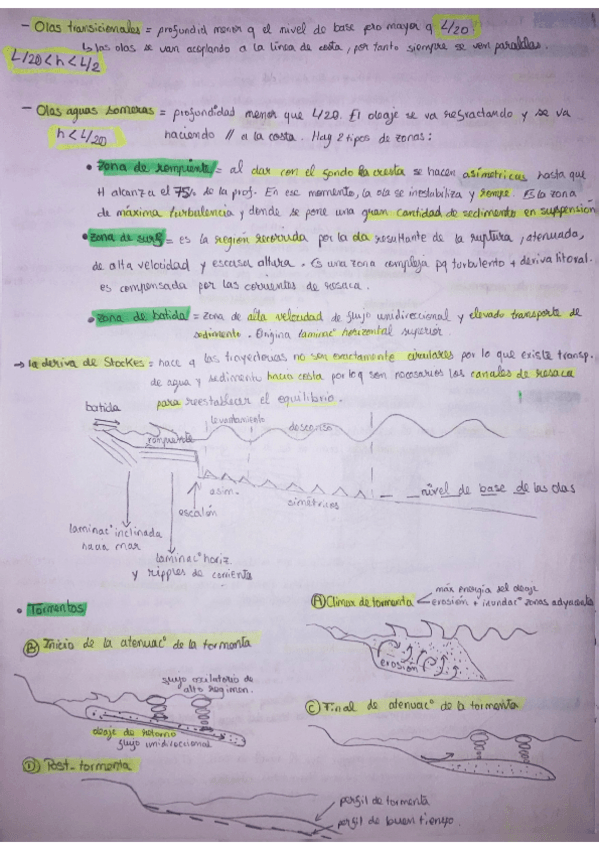 - Olas transicionales = profundid menor q el nivel de base pero mayor q L/20.
↳ las olas se van acoplando a la linea de costa, por tanto siempre se ven paralelas.
L/20 < h < L/2
- Olas aguas someras = profundidad menor que L/20. El oleaje se va refractando y se va
h < L/20
haciendo // a la costa. Hay 2 tipos de zonas:
• Zona de rompiente = al dar con el fondo la cresta se hacen asimetricas hasta que
H alcanza el 75% de la prof. En ese momento, la ola se inestabiliza y rompe. Es la zona
de máxima turbulencia y donde se pone una gran cantidad de sedimento en suspensión
• Zona de surf = es la región recorrida por la ola resultante de la ruptura, atenuada,
de alta velocidad y escasa altura. Es una zona compleja pq turbulento + deriva litoral.
es compensada por las corrientes de resaca.
• Zona de batida = zona de alta velocidad de flujo unidireccional y elevado transporte de
sedimento. Origina laminac° horizontal superior.
→ la deriva de Stockes = hace q las trayectorias no son exactamente circulares por lo que existe transp.
de agua y sedimento hacia costa por lo q son necesarios los canales de resaca
para reestablecer el equilibrio.
batida
rompiente
levantamiento
descanso
asim.
simétricos
nivel de base de las olas
escalón
laminac° inclinada
hacia mar
laminac° horiz.
y ripples de corriente
• Tormentas
Ⓐ Climax de tormenta
más energía del oleaje
erosión + inundac° zonas adyacentes
erosión
Ⓑ Inicio de la atenuac° de la tormenta
flujo oscilatorio de
alto regimen.
oleaje de retorno
flujo unidireccional
Ⓒ Final de atenuac° de la tormenta
Ⓓ Post-tormenta
perfil de tormenta
perfil de buen tiempo